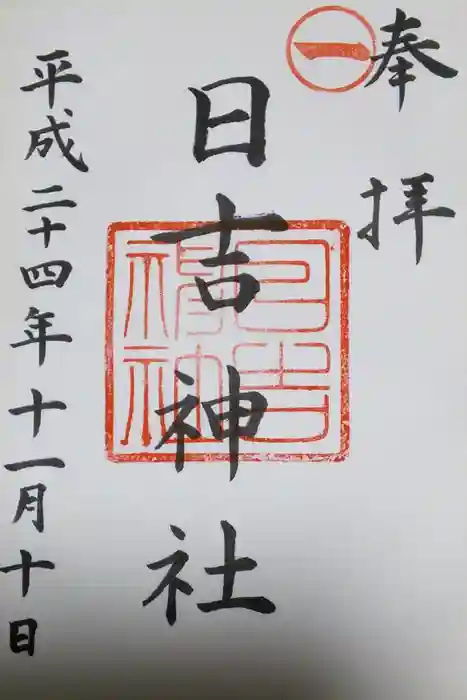 奉拝
一
日吉神社
平成二十四年十一月十日